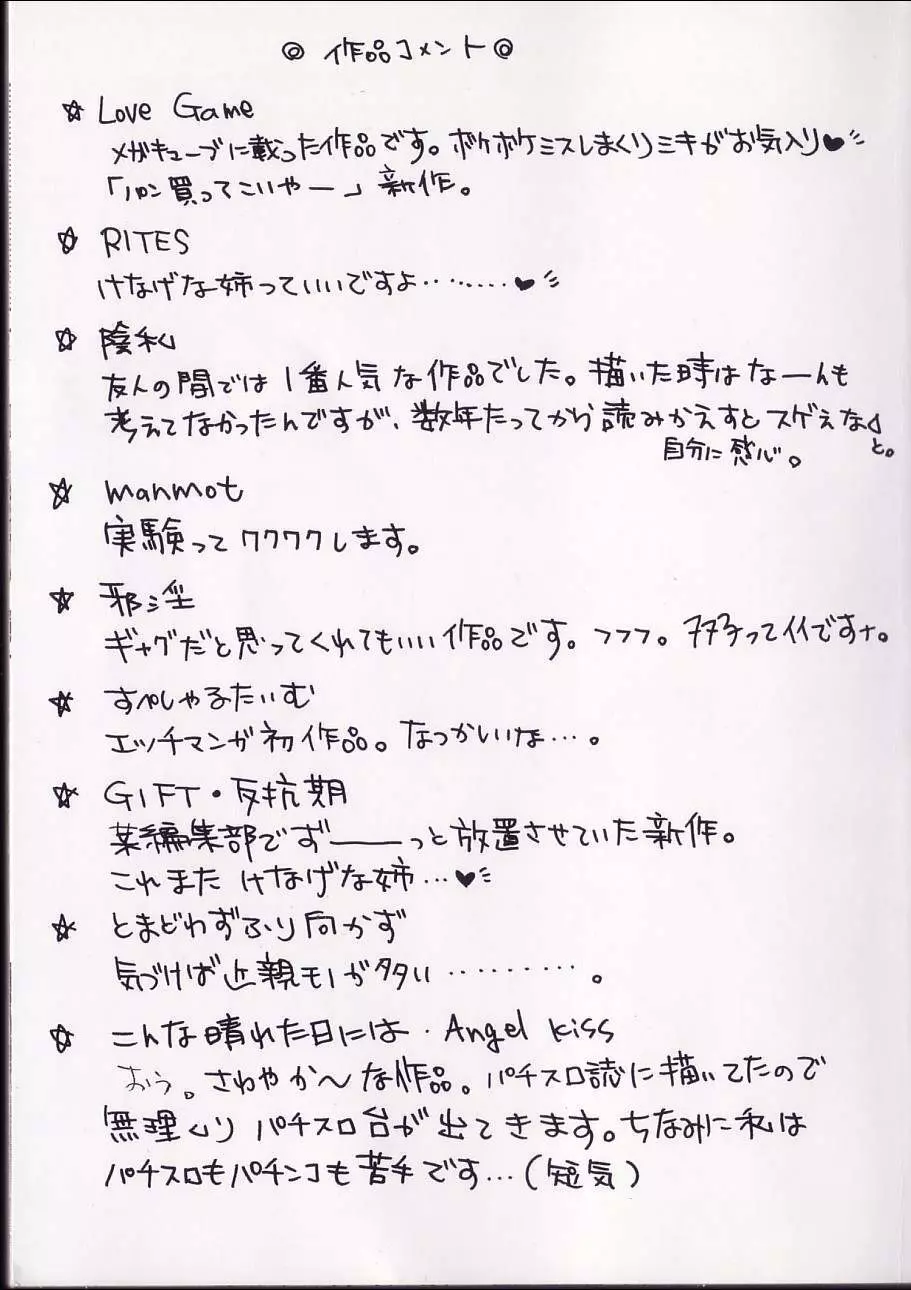 ◎ 作品コメント ◎
☆ Love Game
メガキューブに載った作品です。ボケボケミスしまくりミキがお気入り♥
「パン買ってこいやー」新作。
☆ RITES
けなげな姉っていいですよ‥‥‥‥♥
☆ 陰私
友人の間では1番人気な作品でした。描いた時はなーんも
考えてなかったんですが、数年たってから読みかえすとスゲぇな」と。
自分に感心。
☆ manmot
実験ってワクワクします。
☆ 邪淫
ギャグだと思ってくれてもいい作品です。フフフ。って イイですナ。
☆ すぺしゃるたいむ
エッチマンガ初作品。なつかいいな…。
☆ GIFT・反抗期
某編集部でず――っと放置させていた新作。
これまた けなげな姉…♥
☆ とまどわずふり向かず
気づけば近親モノが多い‥‥‥‥‥。
☆ こんな晴れた日には・Angel kiss
おう。さわやか〜な作品。パチスロ誌に描いてたので
無理くり パチスロ台が出てきます。ちなみに私は
パチスロもパチンコも苦手です…(短気)